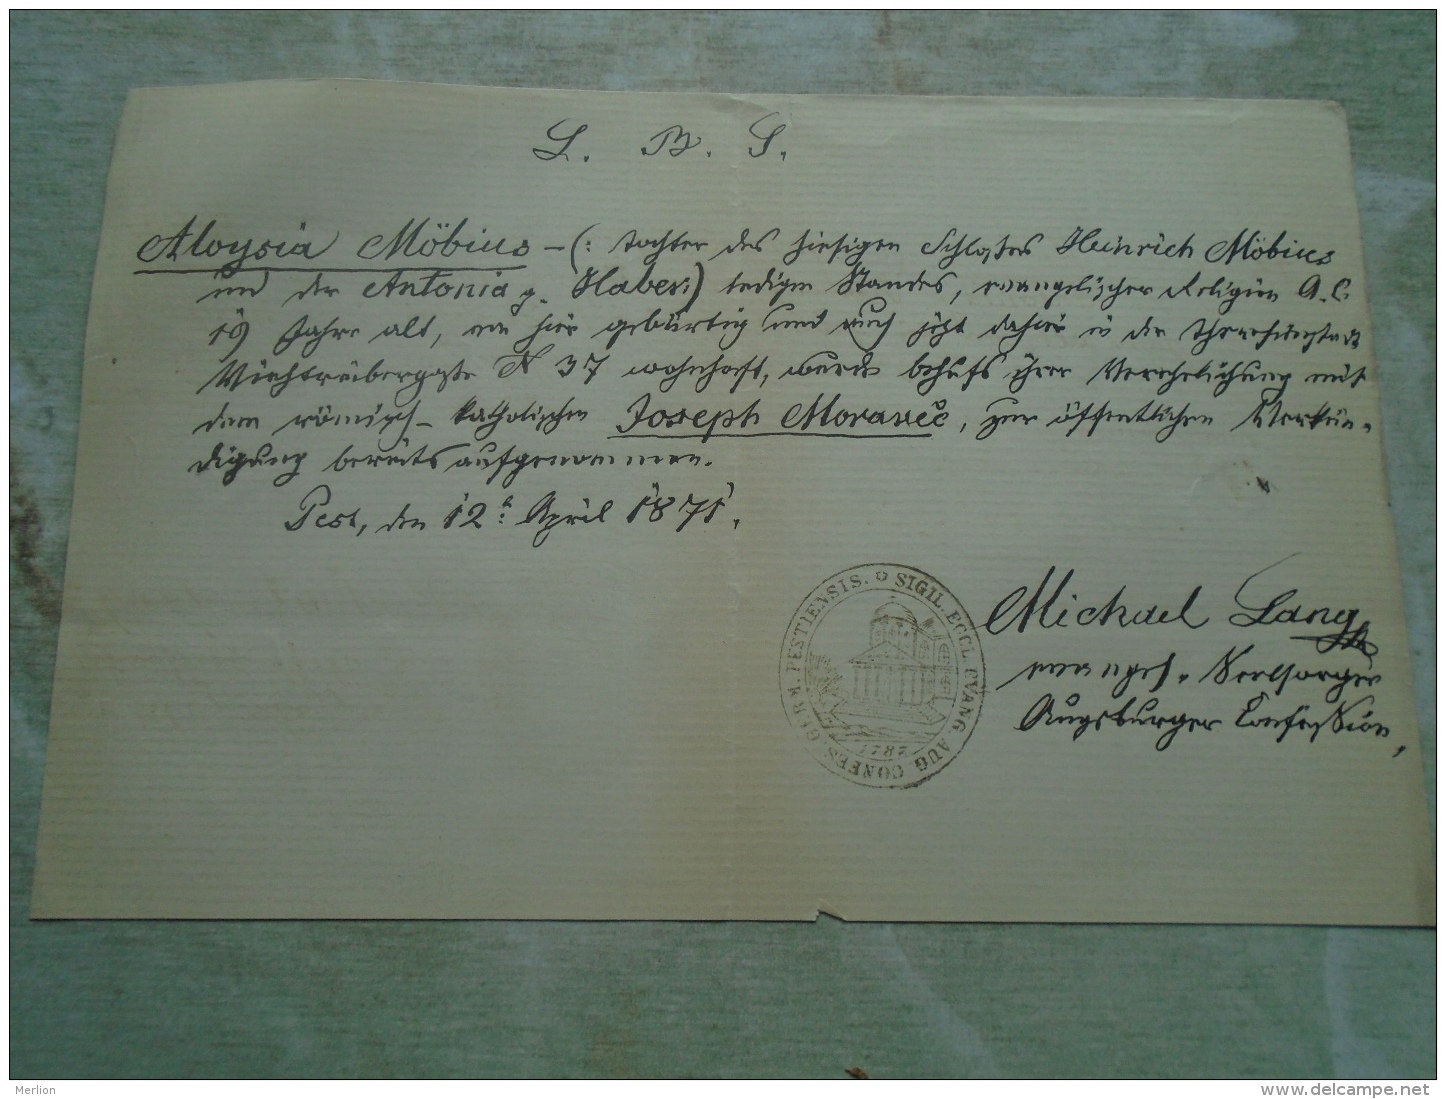 L. B. S.
Aloysia Möbius – (: Tochter des hiesigen Schlossers Heinrich Möbius
und der Antonia g. Haber :) ledigen Standes, evangelischer Religion A. C.
19 Jahre alt, von hier gebürtig und auch jetzt dahier in der Theresienstadt
Viehtreibergasse N 37 wohnhaft, wurde behufs ihrer Verehelichung mit
dem römisch-katholischen Joseph Moraveč, zur öffentlichen Verkün-
digung bereits aufgenommen.
Pest, den 12t: April 1871.
Michael Lang
evangel. Seelsorger
Augsburger Confession,
SIGIL. ECCL. EVANG. AUG. CONFES. GERM. PESTIENSIS.
1787
Merlion
www.delcampe.net